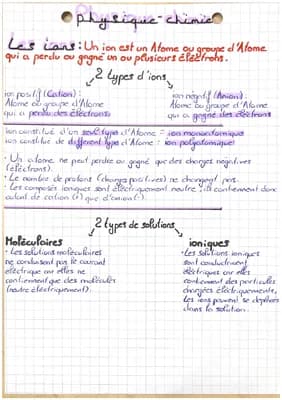 Physique-chimie
Les ions : Un ion est un Atome ou groupe d'Atome
qui a perdu ou gagné un ou plusieurs électrons.
2 types d'ions
ion positif (Cation) :
Atome ou groupe d'Atome
qui a perdu des électrons
ion négatif (Anion) :
Atome ou groupe d'Atome
qui a gagné des électrons
ion constitué d'un seul type d'Atome = ion monoatomique
ion constitué de différent type d'Atome = ion polyatomique
• Un atome ne peut perdre ou gagné que des charges négatives
(électrons).
• Le nombre de protons (charges positives) ne changent pas.
• Les composés ioniques sont électriquement neutre, ils contiennent donc
autant de cation (+) que d'anion (-).
2 types de solutions
Moléculaires
• Les solutions moléculaires
ne conduisent pas le courant
électrique car elles ne
contiennent que des molécules
(neutre électriquement).
ioniques
• Les solutions ioniques
sont conductrices
électriques car elles
contiennent des particules
chargées électriquements,
Les ions peuvent se déplacer
dans la solution.